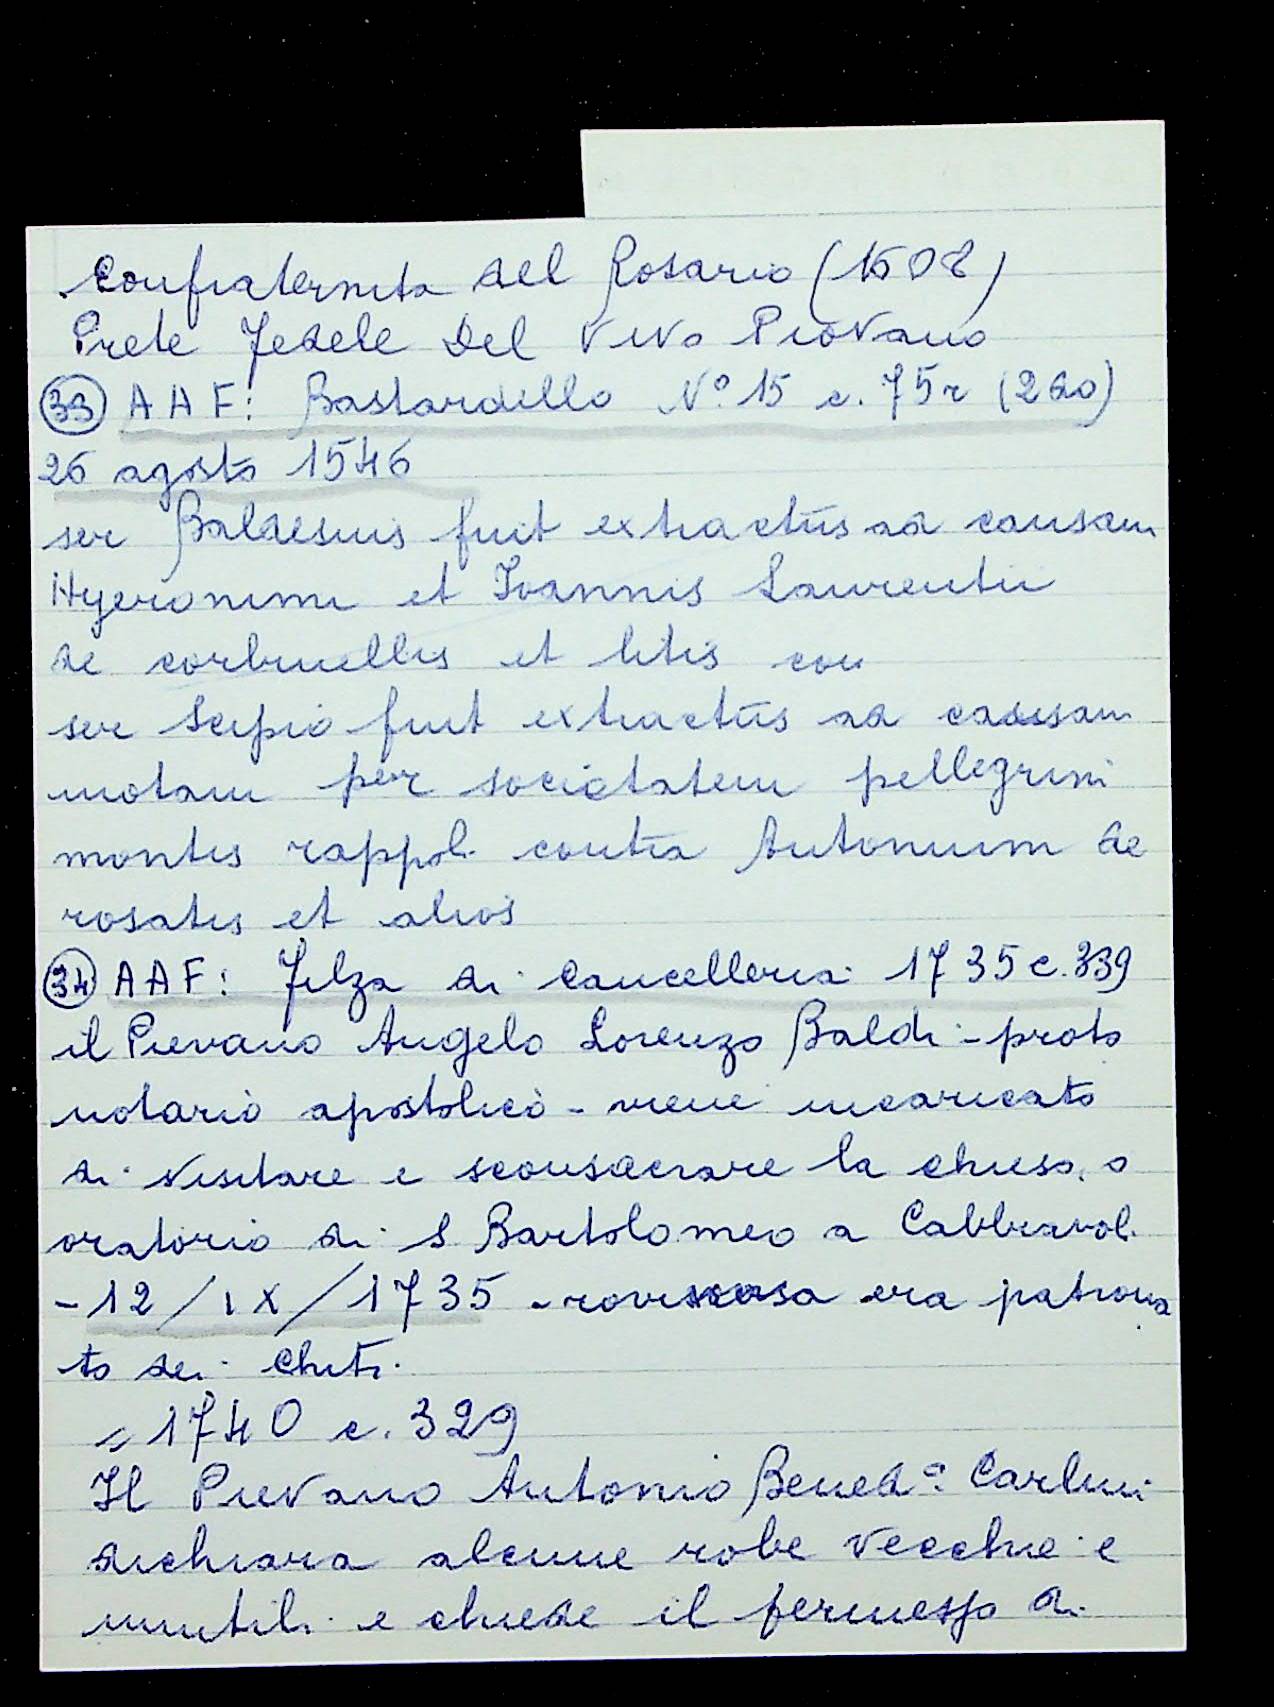 Confraternita del Rosario (1608)
Prete Fedele Del Vivo Piovano
(33) AAF: Bastardello N° 15 c. 75r (2do)
26 agosto 1546
ser Baldesius fuit extractus ad causam
Hyeronimi et Ioannis Laurentii
de corbinellis et litis con
ser Scipio fuit extractus ad causam
motam per societatem pellegrini
montis rappoli contra Antonium de
rosatis et alios
(34) AAF: Filza di Cancelleria 1735 c. 339
il Pievano Angelo Lorenzo Baldi - proto
notario apostolico - viene incaricato
di visitare e sconsacrare la chiesa o
oratorio di S Bartolomeo a Cabbiavoli
- 12/IX/1735 - rovinosa era patrona
to dei Chiti.
= 1740 c. 329
Il Pievano Antonio Bened° Carlini
dichiara alcune robe vecchie e
inutili e chiede il permesso di